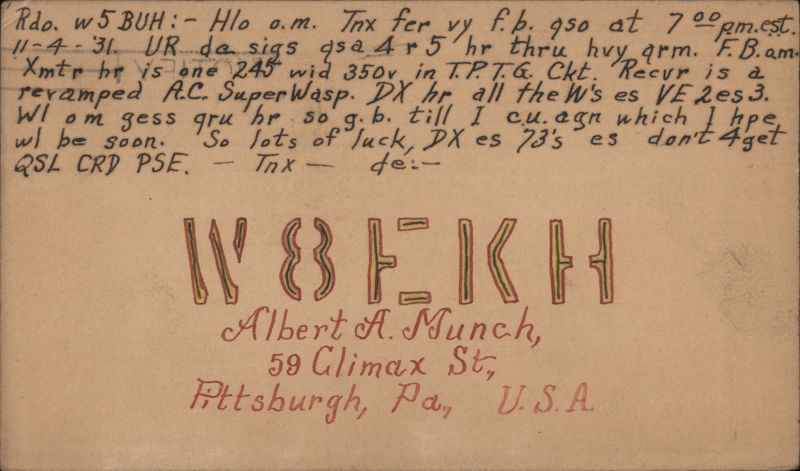 Rdo. w5BUH:- Hlo o.m. Tnx fer vy f.b. qso at 7 00 pm.est.
11-4-'31. UR dc sigs qsa 4 r 5 hr thru hvy qrm. F.B.om.
Xmtr hr is one 245 wid 350v in T.P.T.G. Ckt. Recvr is a
revamped A.C. SuperWasp. DX hr all the W's es VE 2es3.
Wl om gess qru hr so g.b. till I c.u.agn which I hpe
wl be soon. So lots of luck, DX es 73's es don't 4get
QSL CRD PSE. — Tnx — de:-
W8EKH
Albert A. Munch,
59 Climax St.,
Pittsburgh, Pa., U.S.A.